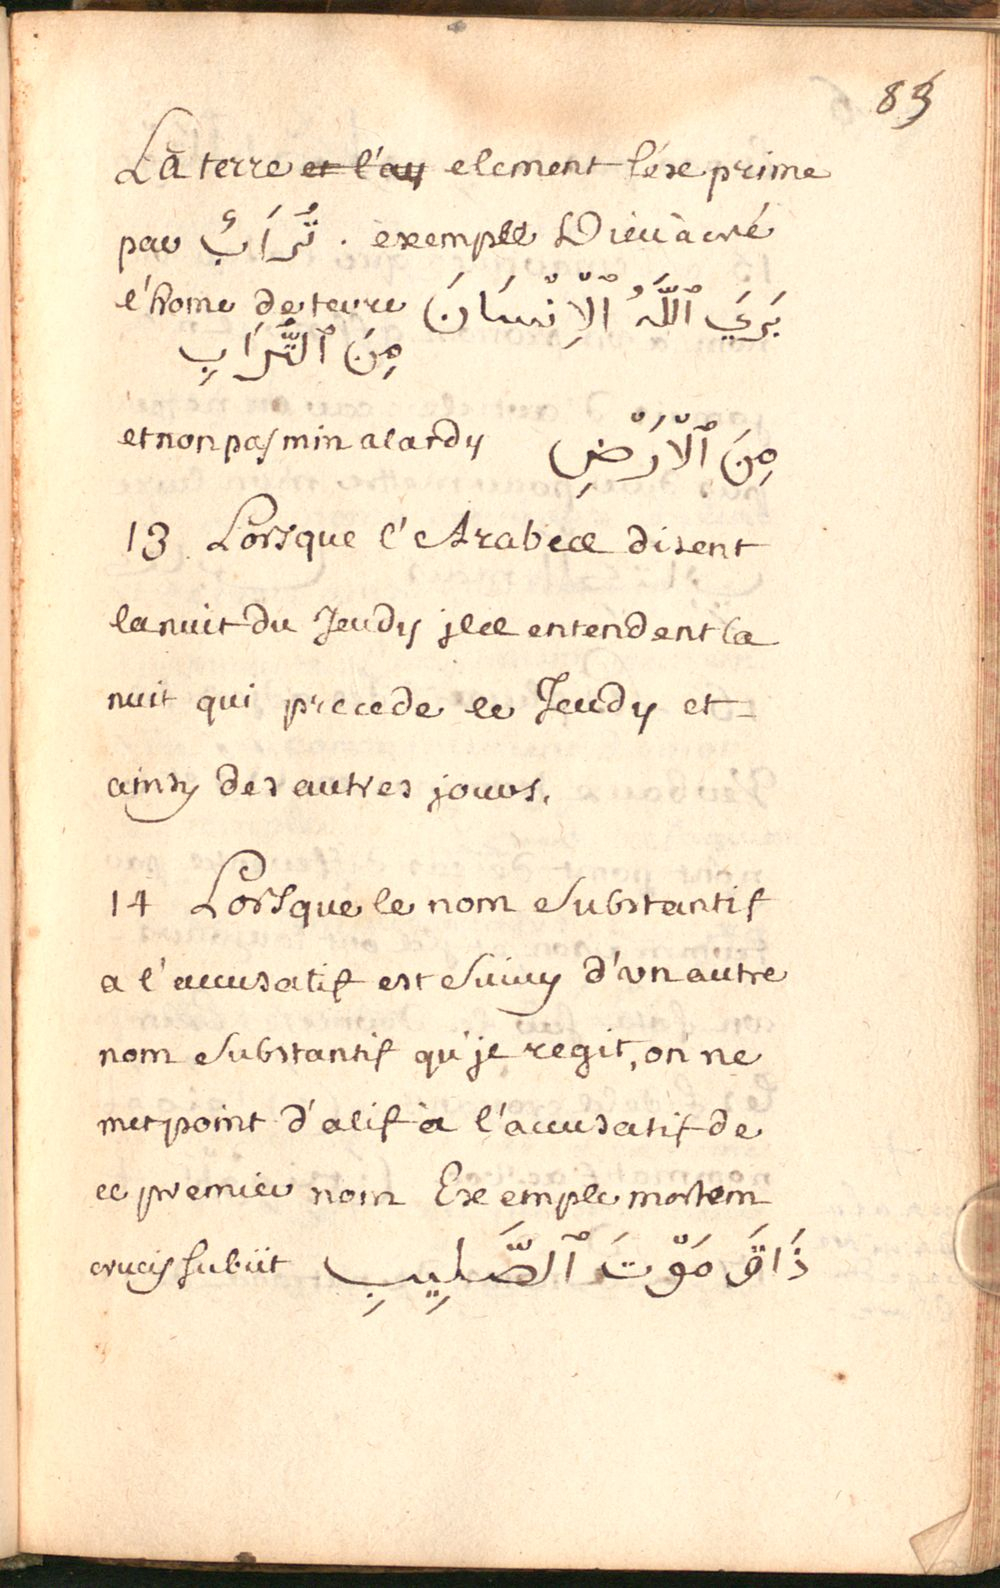 83
La terre et l'au element s'éxe prime
par تُرَابٌ . exemple Dieu à creé
l'home de terre بَرَيَ ٱللَّهُ ٱلْاِنْسَانَ
مِنَ ٱلتُّرَابِ
et non pas min alardy مِنَ ٱلْاَرْضِ
13 Lorsque l'Arabes disent
la nuit du Jeudy jles entendent la
nuit qui precede le Jeudy et
ainsy des autres jours.
14 Lorsque le nom substantif
a l'accusatif est suivy d'vn autre
nom substantif qu'jl regit, on ne
met point d'alif à l'accusatif de
ce premier nom Exemple mortem
crucis subiit ذَاقَ مَوْتَ ٱلصَّلِيبِ